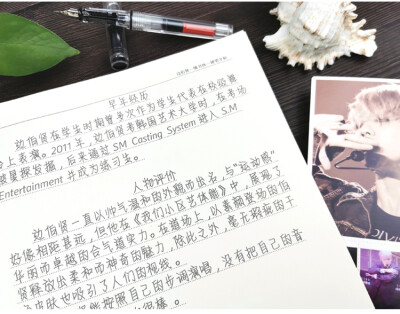 早年经历
边伯贤在学生时期曾多次作为学生代表在校级舞
台上表演。2011年，边伯贤考韩国艺术大学时，在考场
被星探发掘，后来通过SM Casting System进入S.M
Entertainment并成为练习生。
人物评价
边伯贤一直以帅气温和的外貌而出名，与“运动感”
好像相距甚远，但他在《我们小区艺体能》中，展离了
华丽而卓越的合气道实力。在道场上，以素颜登场的伯
贤释放出柔和而神奇的魅力，除此之外，毫无瑕疵的干
皮肤也吸引了人们的视线。
能按照自己的步调演唱，没有把自己的音
很棒。